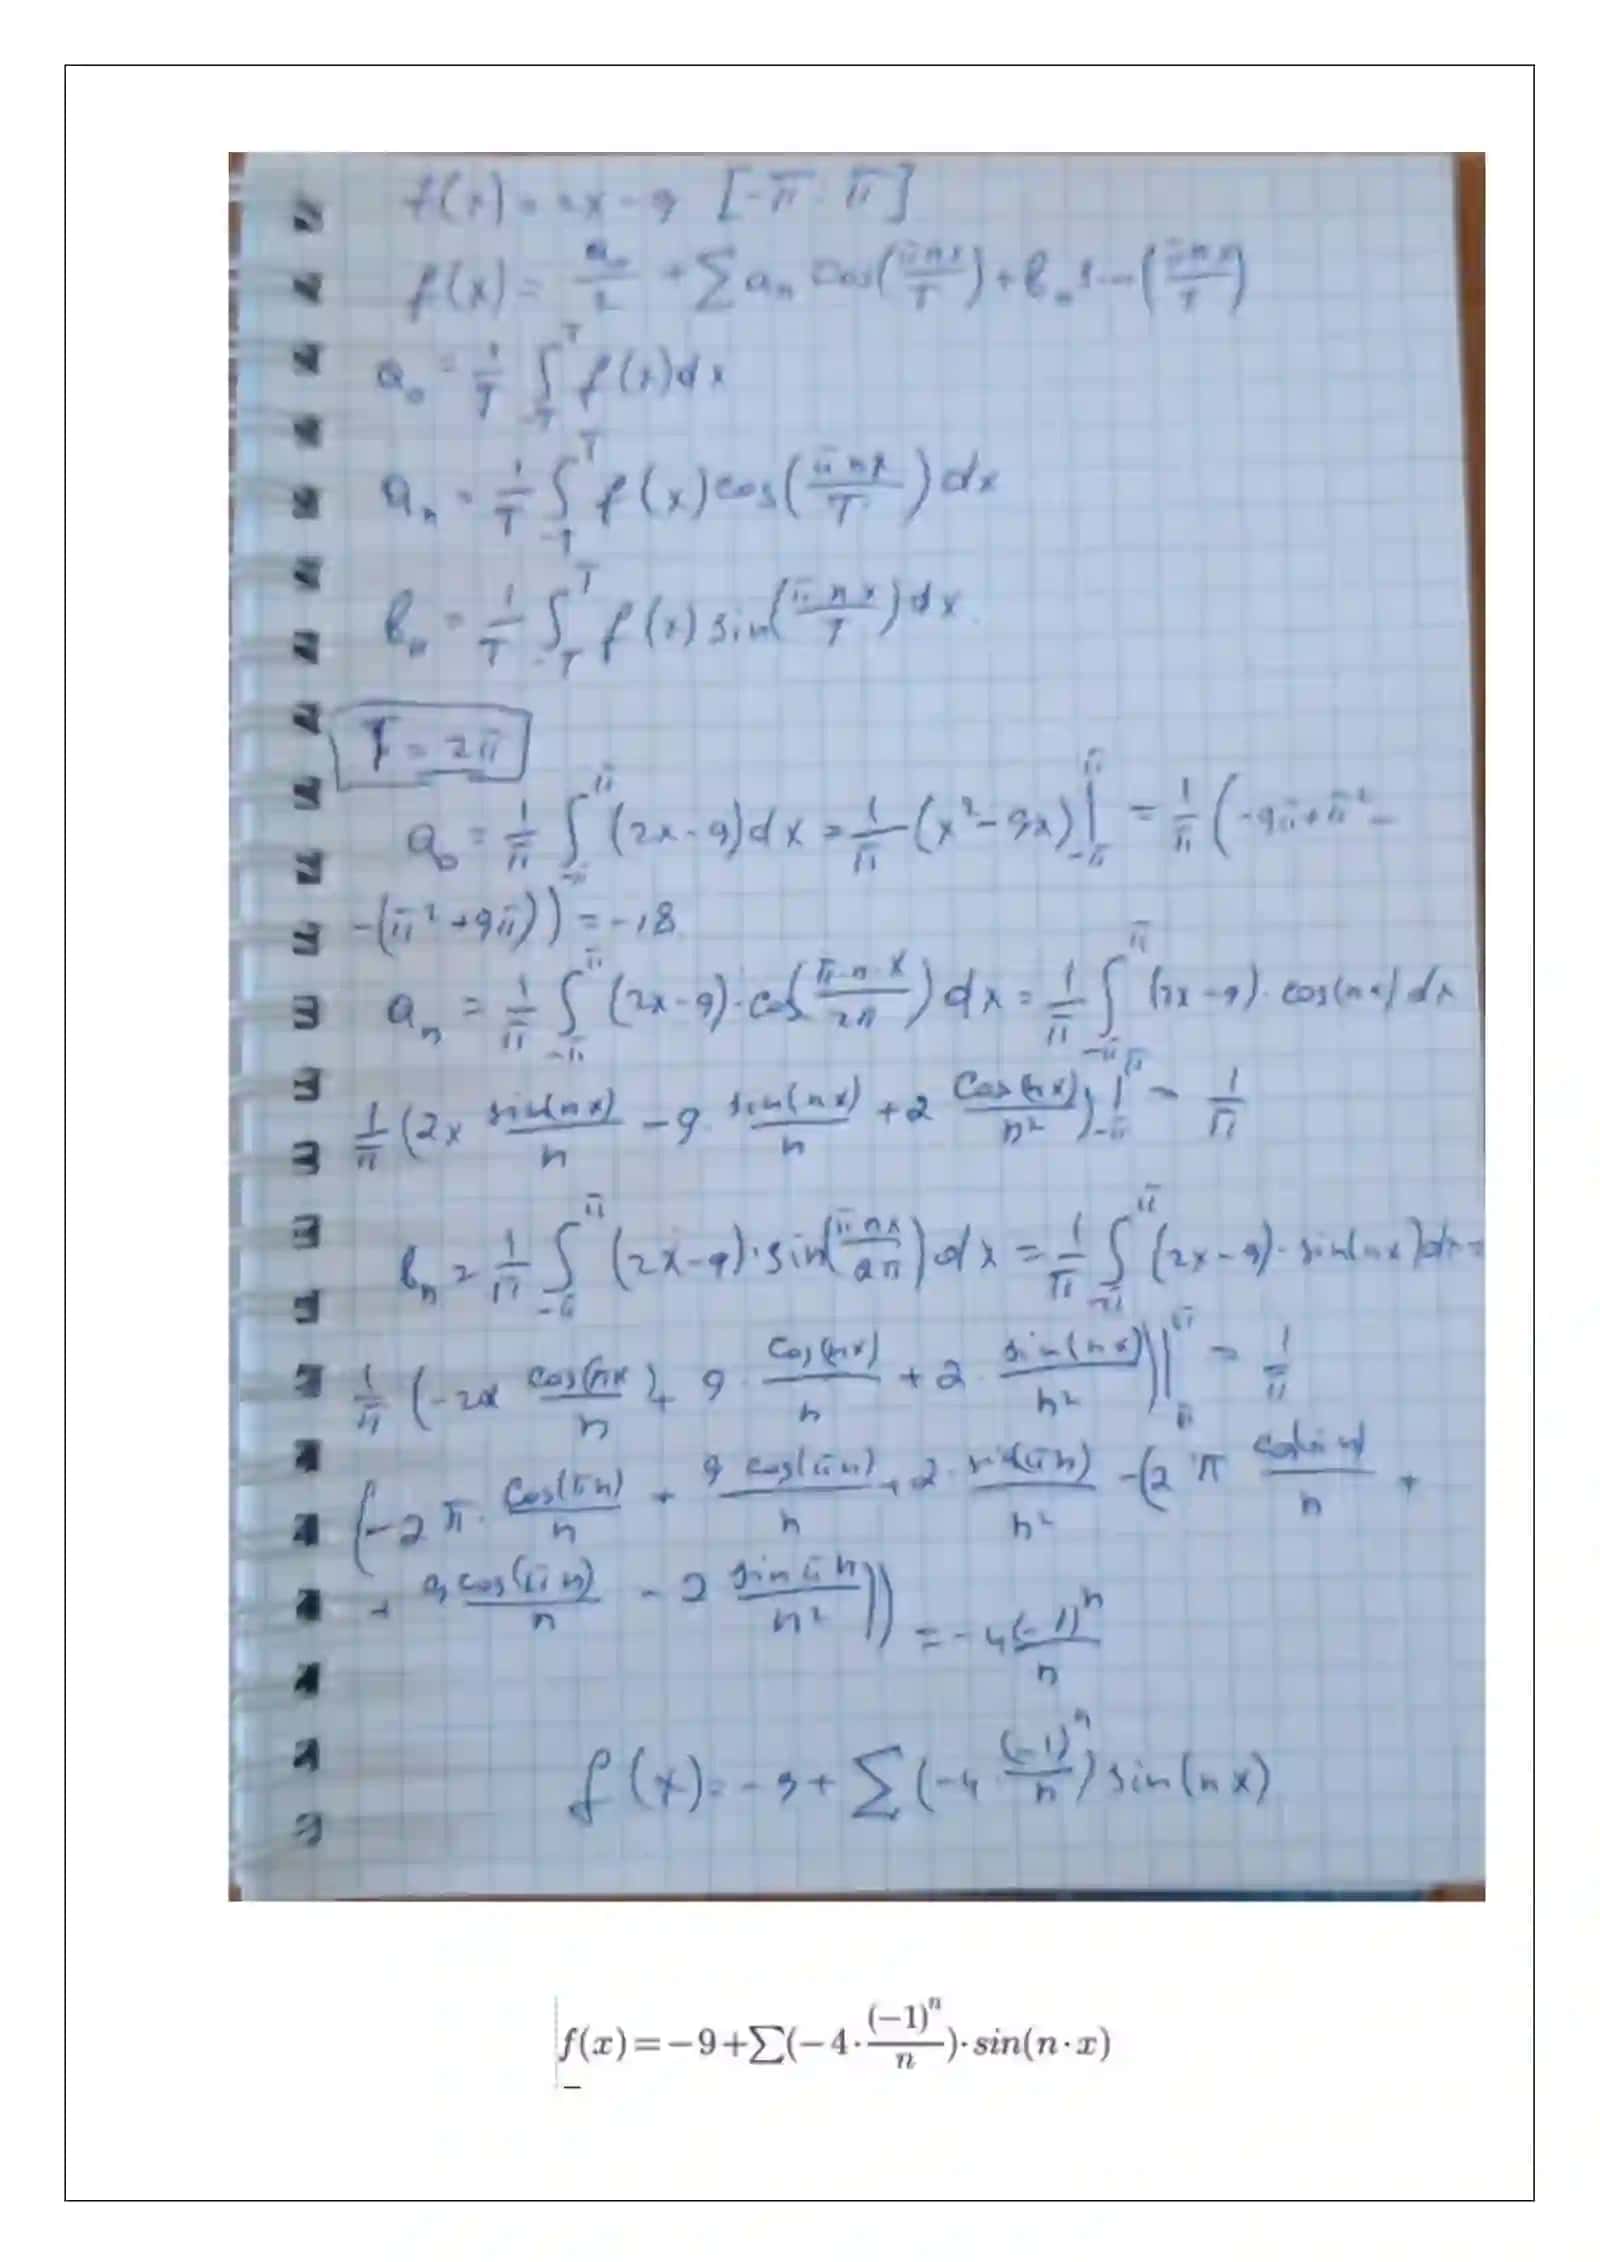 f(x) = 2x - 9 [-π; π]
f(x) = a₀/2 + ∑ aₙ cos(πnx/T) + bₙ sin(πnx/T)
a₀ = 1/T ∫_{-T}^{T} f(x)dx
aₙ = 1/T ∫_{-T}^{T} f(x) cos(πnx/T) dx
bₙ = 1/T ∫_{-T}^{T} f(x) sin(πnx/T) dx.
T = 2π
a₀ = 1/π ∫_{-π}^{π} (2x-9)dx = 1/π (x²-9x)|_{-π}^{π} = 1/π (-9π+π² -
-(π²+9π)) = -18
aₙ = 1/π ∫_{-π}^{π} (2x-9)·cos(π·n·x/2π) dx = 1/π ∫_{-π}^{π} (2x-9)·cos(nx) dx
1/π (2x sin(nx)/n - 9 · sin(nx)/n + 2 cos(nx)/n²)|_{-π}^{π} = 1/π
bₙ = 1/π ∫_{-π}^{π} (2x-9)·sin(πnx/2π) dx = 1/π ∫_{-π}^{π} (2x-9)·sin(nx)dx =
1/π (-2x cos(nx)/n + 9 · cos(nx)/n + 2 · sin(nx)/n²)|_{π}^{π} = 1/π
(-2π · cos(πn)/n + 9 cos(πn)/n + 2 · sin(πn)/n² - (2 π cos(πn)/n +
+ 9 cos(πn)/n - 2 sin πn/n²)) = -4 (-1)ⁿ/n
f(x) = -9 + ∑ (-4 · (-1)ⁿ/n) sin(nx)
f(x)=-9+∑(-4·(-1)ⁿ/n)·sin(n·x)